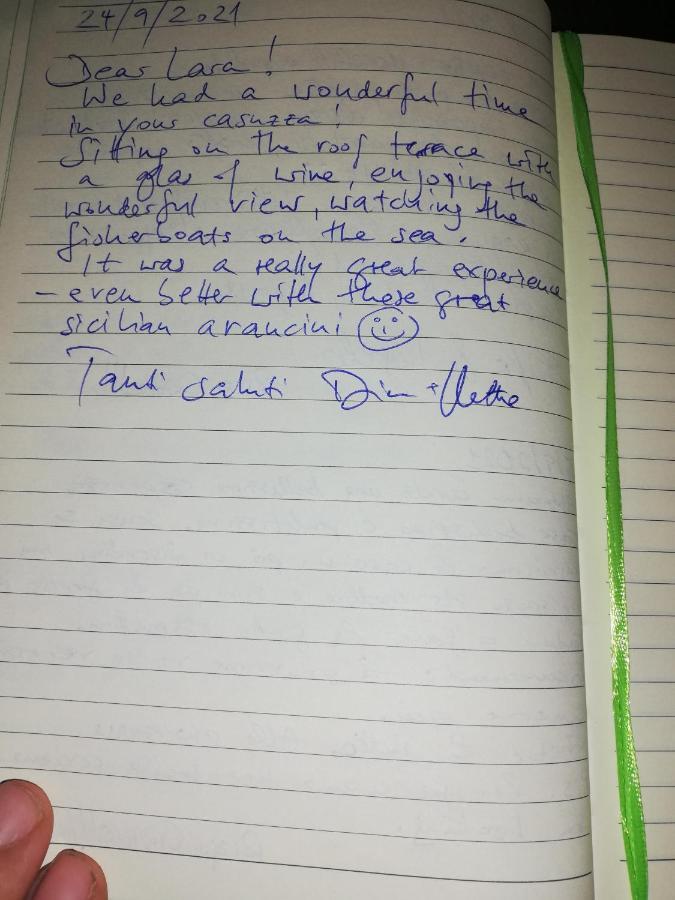 24/9/2021
Dear Lara!
We had a wonderful time
in your casuzza!
Sitting on the roof terrace with
a glas of wine, enjoying the
wonderful view, watching the
fisherboats on the sea.
It was a really great experience
- even better with these great
sicilian arancini ☺
Tanti saluti